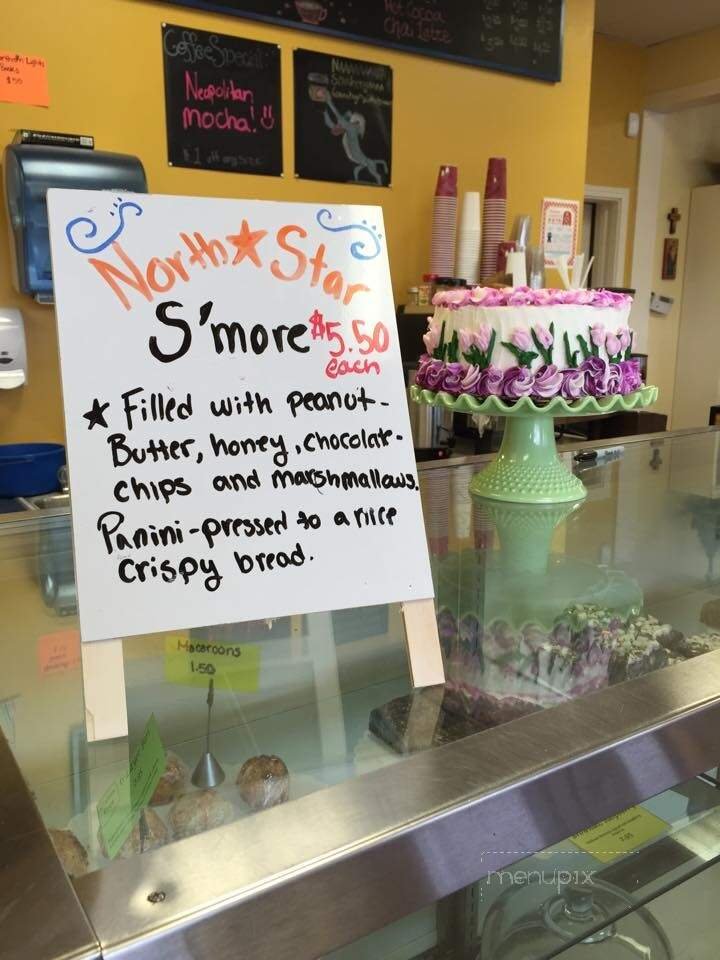 Hot Cocoa
Chai Latte
Coffee Special
Neapolitan
mocha!
$1 off any size
North★Star
S'more $5.50
each
★ Filled with peanut-
Butter, honey, chocolate-
chips and marshmallows.
Panini-pressed to a nice
crispy bread.
Macaroons
1.50
menupix